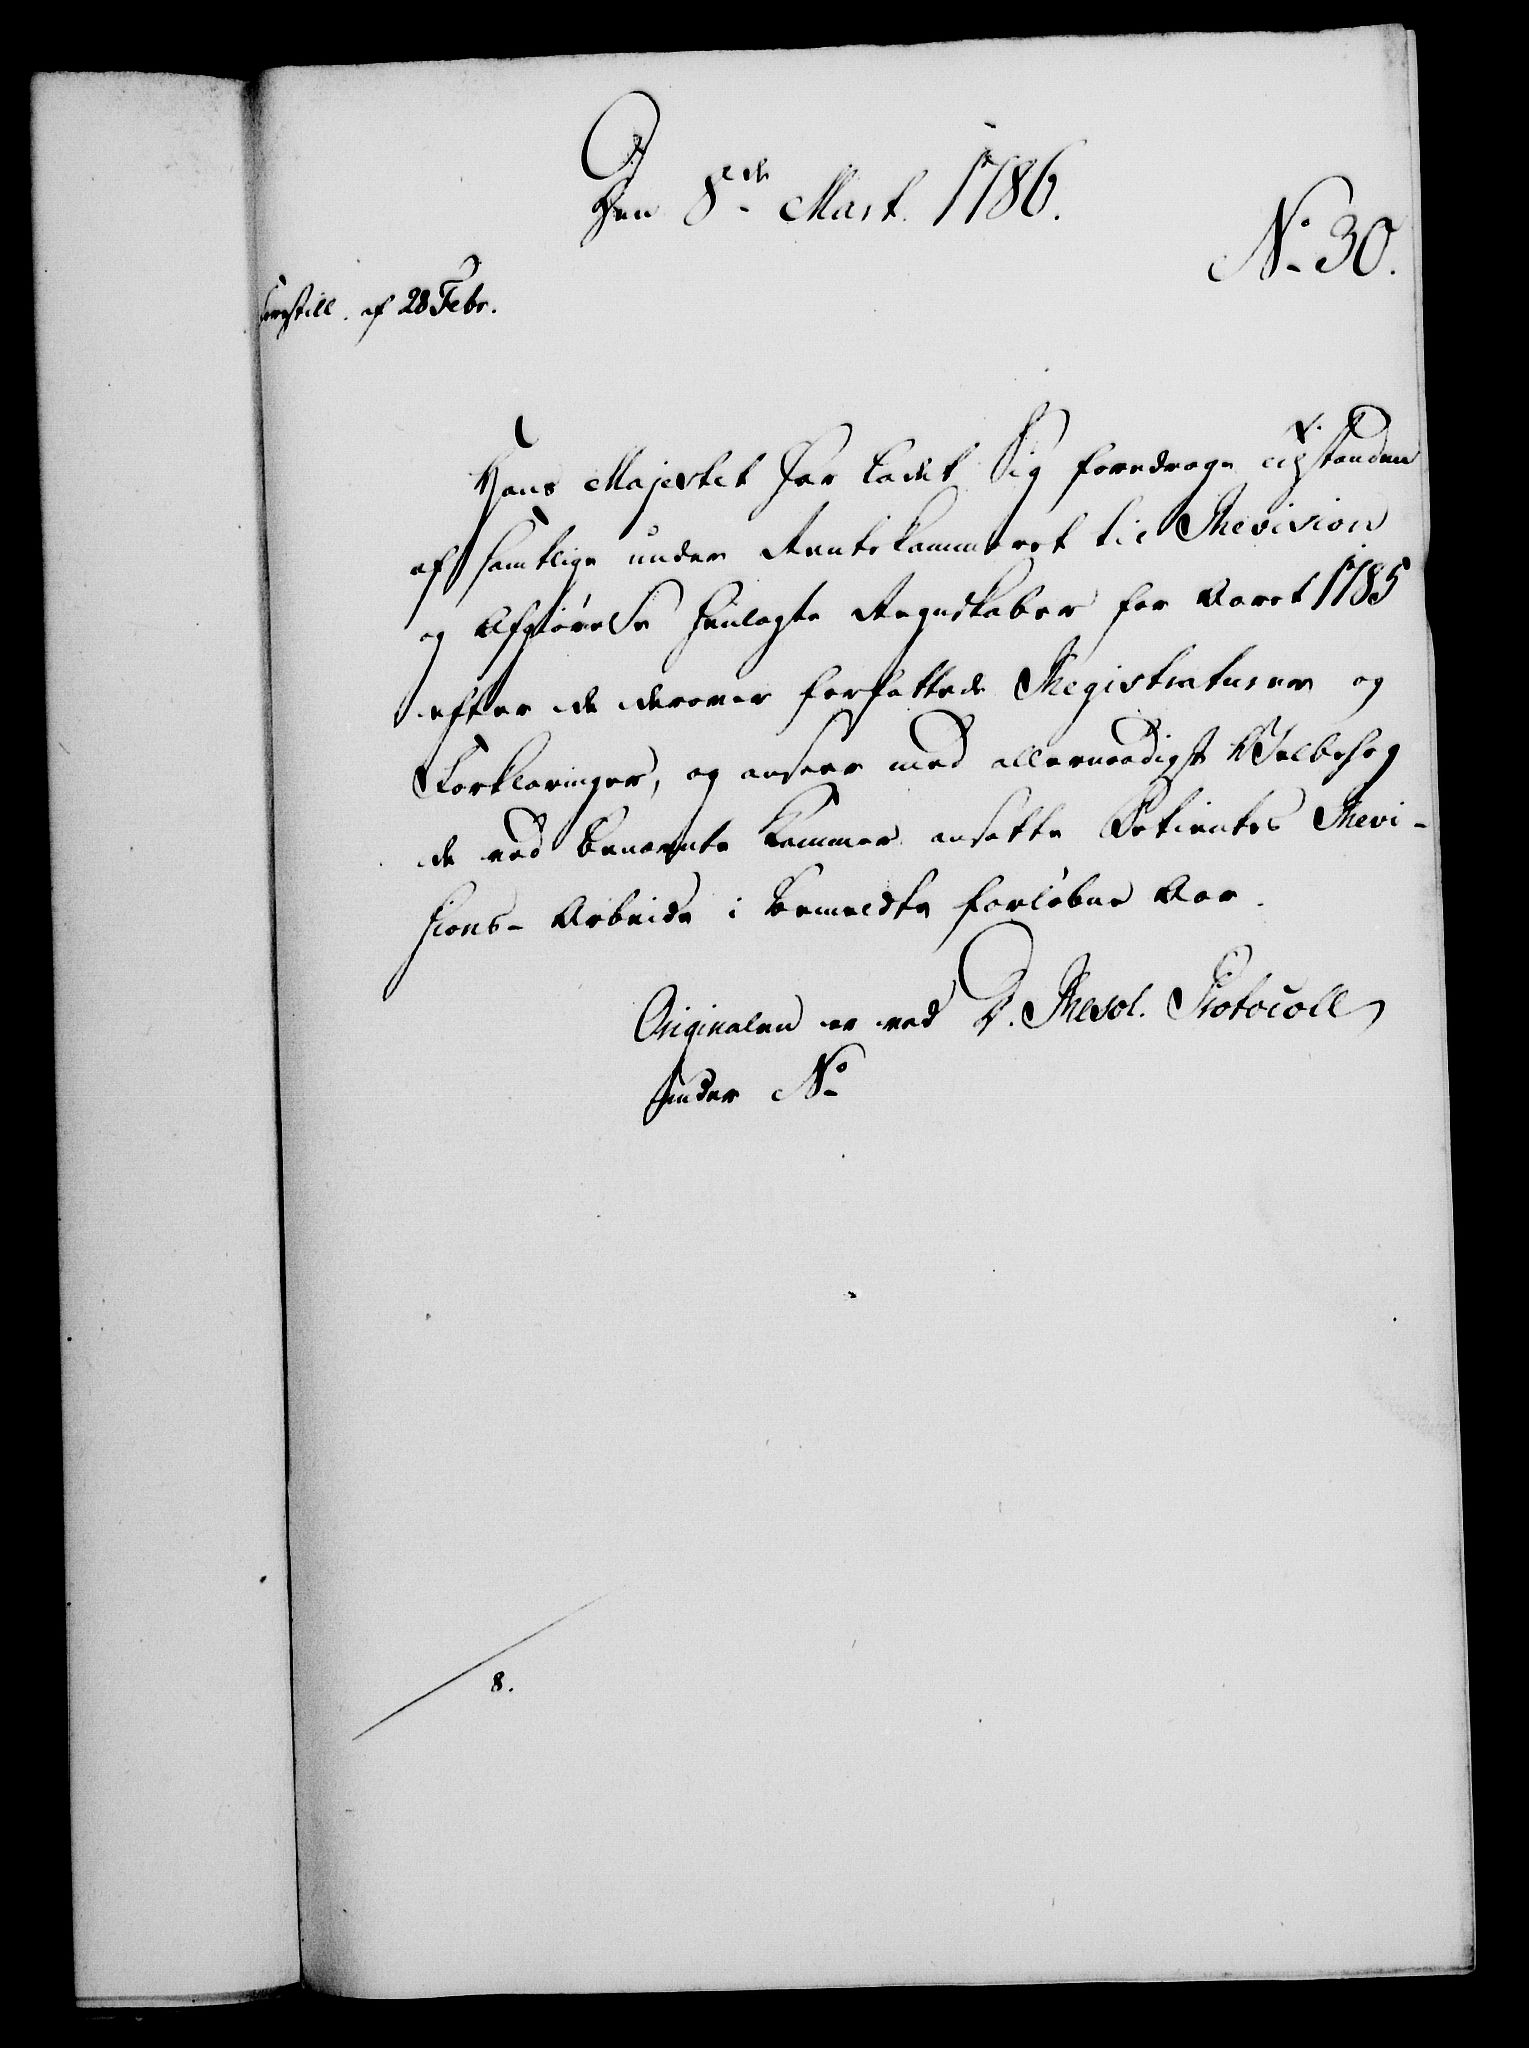 Den 8de Mart. 1786.
No 30.
Forestill. af 28 Febr.
Hans Majestet har ladet Sig foredrage Tilstanden
af samtlige under Rentekammeret til Revision
og Afgiørelse henlagte Regnskaber for Aaret 1785
efter de derover forfattede Registraturer og
Forklaringer, og anseer med allernaadigst Velbehag
de ved benævnte Kammer ansatte Betientes Revi-
sions-Arbeide i bemeldte forløbne Aar.
Originalen er ved D. Resol. Protocoll
under No
8.